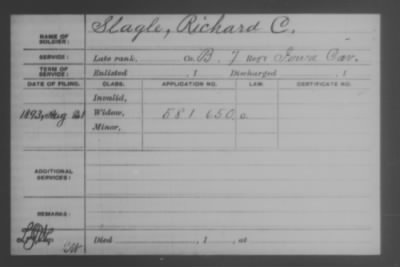 NAME OF SOLDIER: Slagle, Richard C.
SERVICE: Late rank, Co. B. 7 Reg't Iowa Cav.
TERM OF SERVICE: Enlisted , 1 Discharged , 1
DATE OF FILING. CLASS. APPLICATION NO. LAW. CERTIFICATE NO.
Invalid,
1893, Aug 21 Widow, 581 650, o.
Minor,
ADDITIONAL SERVICES:
REMARKS:
Died , 1 , at